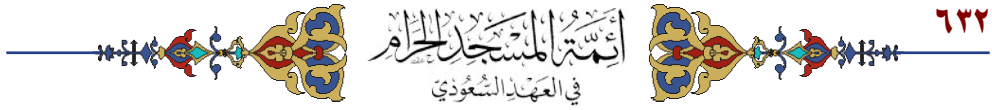 ٦٣٢
أَئِمَّةُ المَسْجِدِ الحَرَامِ
فِي العَهْدِ السُّعُوْدِيّ